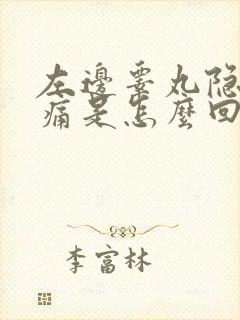 左邊睪丸隐
痛是怎麼回
李富林